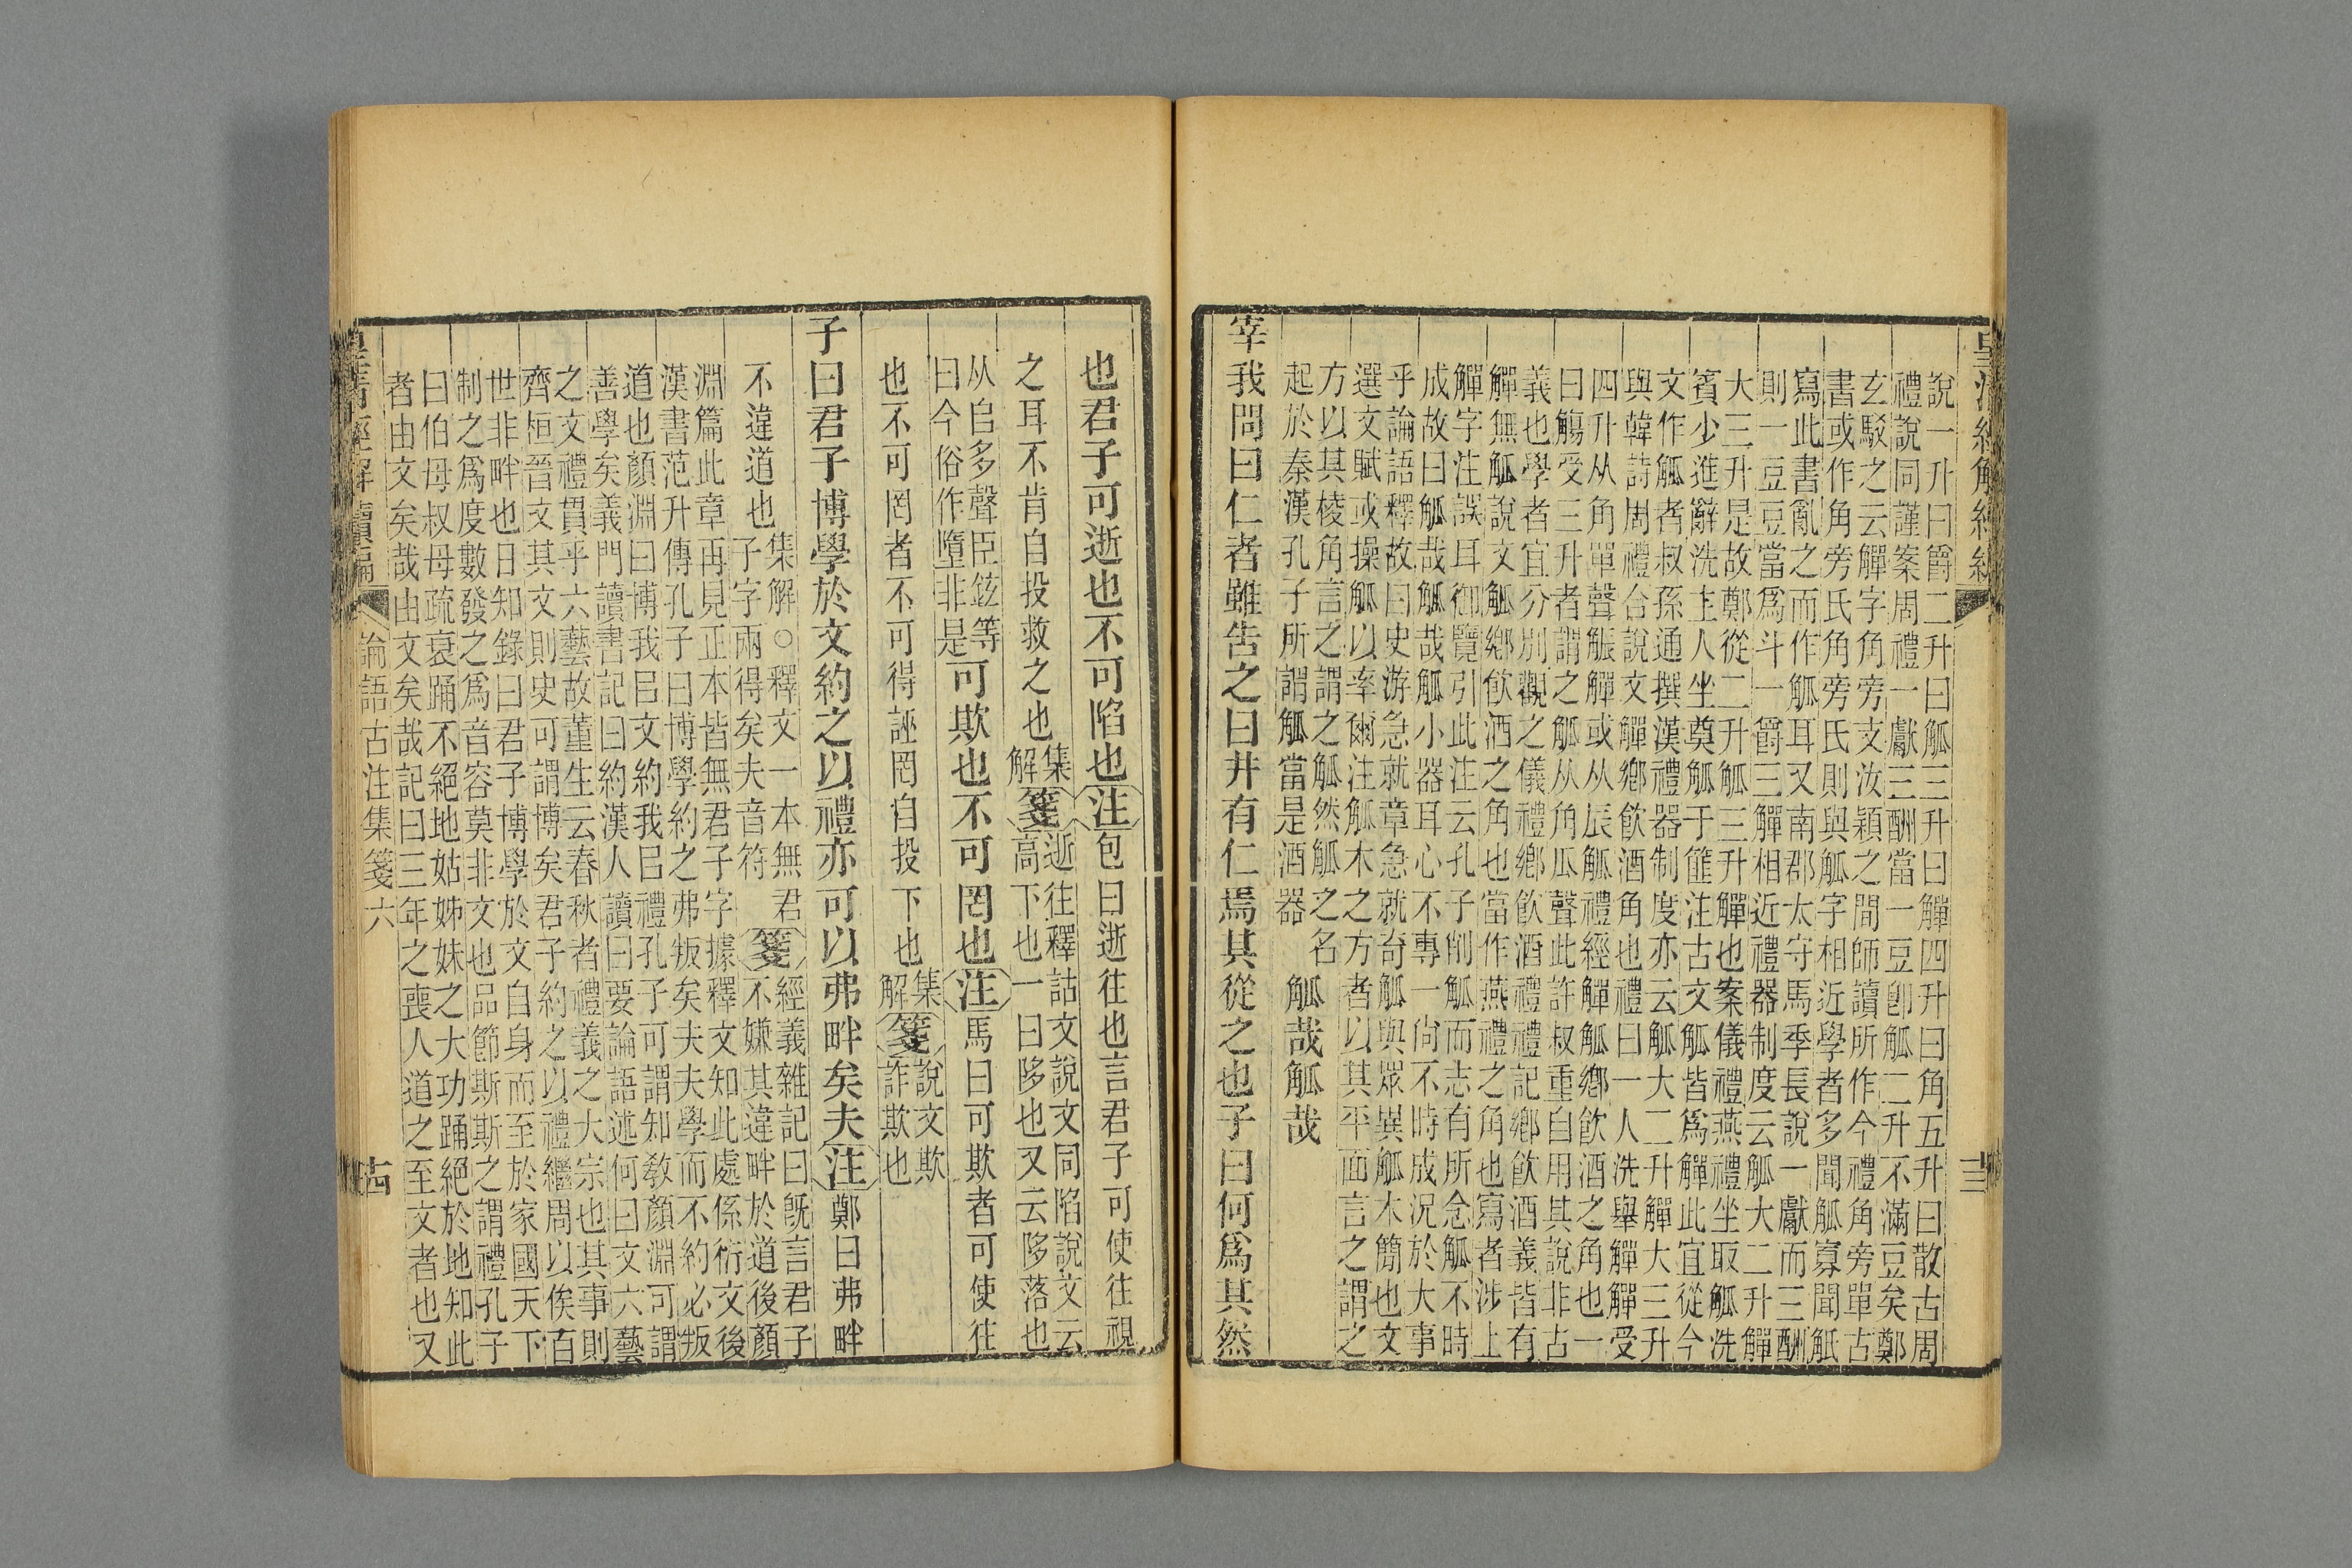 皇清經解續編
十三
說一升曰爵二升曰觚三升曰觶四升曰角五升曰散古周
禮說同謹案周禮一獻三酬當一豆卽觚二升不滿豆矣鄭
玄駁之云觶字角旁支汝潁之間師讀所作今禮角旁單古
書或作角旁氏角旁氏則與觚字相近學者多聞觚寡聞觗
寫此書亂之而作觚耳又南郡太守馬季長說一獻而三酬
則一豆豆當爲斗一爵三觶相近禮器制度云觚大二升觶
大三升是故鄭從二升觚三升觶也案儀禮燕禮坐取觚洗
賓少進辭洗主人坐奠觚于篚注古文觚皆爲觶此宜從今
文作觚者叔孫通撰漢禮器制度亦云觚大二升觶大三升
與韓詩周禮合說文觶鄉飮酒角也禮曰一人洗舉觶觶受
四升从角單聲䚨觶或从辰觚禮經觶觚鄉飮酒之角也一
曰觴受三升者謂之觚从角瓜聲此許叔重自用其說非古
義也學者宜分別觀之儀禮鄉飮酒禮禮記鄉飮酒義皆有
觶無觚說文觚鄉飮酒之角也當作燕禮之角也寫者涉上
觶字注誤耳御覽引此注云孔子削觚而志有所念觚不時
成故曰觚哉觚哉觚小器耳心不專一尙不時成況於大事
乎論語釋故曰史游急就章急就奇觚與眾異觚木簡也文
選文賦或操觚以率爾注觚木之方者以其平面言之謂之
方以其棱角言之謂之觚然觚之名
起於秦漢孔子所謂觚當是酒器
觚哉觚哉
宰我問曰仁者雖告之曰井有仁焉其從之也子曰何爲其然
也君子可逝也不可陷也注包曰逝往也言君子可使往視
之耳不肯自投救之也集解箋逝往釋詁文說文同陷說文云
高下也一曰陊也又云陊落也
从𨸏多聲臣鉉等
曰今俗作墮非是
可欺也不可罔也注馬曰可欺者可使往
也不可罔者不可得誣罔自投下也集解箋說文欺
詐欺也
子曰君子博學於文約之以禮亦可以弗畔矣夫注鄭曰弗畔
不違道也集解○釋文一本無君
子字兩得矣夫音符
箋經義雜記曰旣言君子
不嫌其違畔於道後顏
淵篇此章再見正本皆無君子字據釋文知此處係衍文後
漢書范升傳孔子曰博學約之弗叛矣夫夫學而不約必叛
道也顏淵曰博我㠯文約我㠯禮孔子可謂知敎顏淵可謂
善學矣義門讀書記曰約漢人讀曰要論語述何曰文六藝
之文禮貫乎六藝故董生云春秋者禮義之大宗也其事則
齊桓晉文其文則史可謂博矣君子約之以禮繼周以俟百
世非畔也日知錄曰君子博學於文自身而至於家國天下
制之爲度數發之爲音容莫非文也品節斯斯之謂禮孔子
曰伯母叔母疏衰踊不絕地姑姊妹之大功踊絕於地知此
者由文矣哉由文矣哉記曰三年之喪人道之至文者也又
皇清經解續編
論語古注集箋六
古